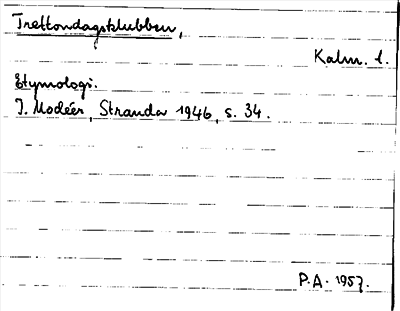 Trettondagsklubben,
Kalm. l.
Etymologi.
I. Modéer, Stranda 1946, s. 34.
P.A. 1957.